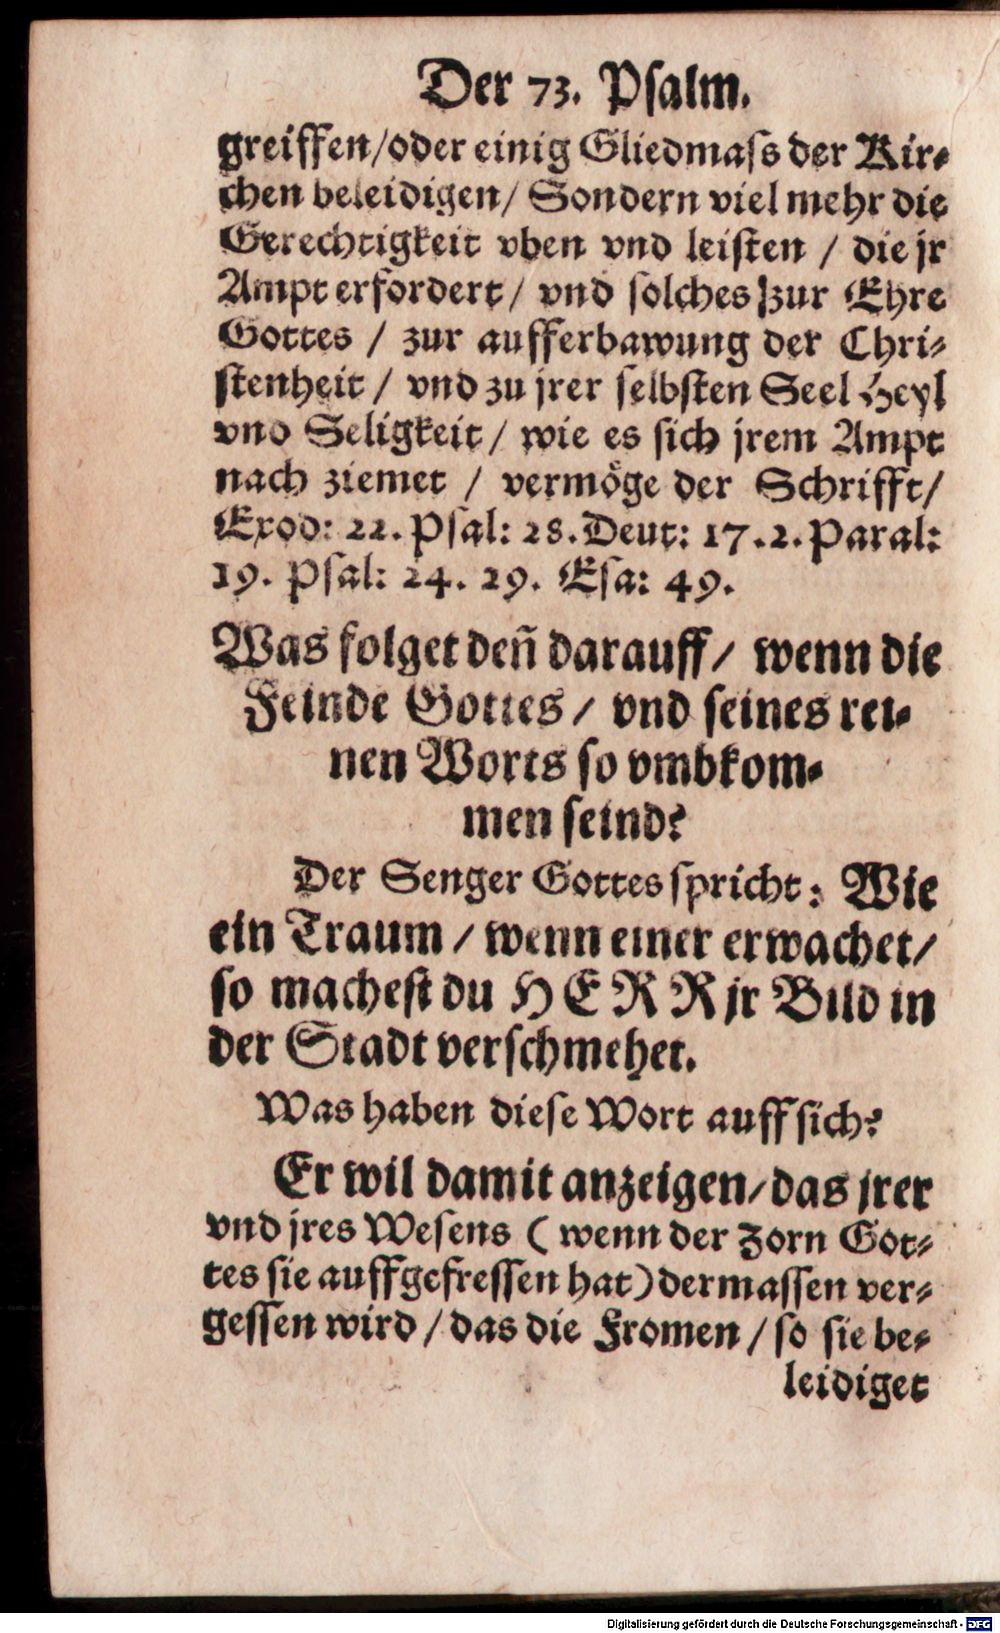 Der 73. Psalm.
greiffen/oder einig Gliedmaſs der Kir⸗
chen beleidigen/ Sondern viel mehr die
Gerechtigkeit vben vnd leiſten / die jr
Ampt erfordert/ vnd ſolches zur Ehre
Gottes / zur aufferbawung der Chri⸗
ſtenheit / vnd zu jrer ſelbſten Seel Heyl
vnd Seligkeit/ wie es ſich jrem Ampt
nach ziemet / vermöge der Schrifft/
Exod: 22. Pſal: 28. Deut: 17. 2. Paral:
19. Pſal: 24. 29. Eſa: 49.
Was folget deñ darauff/ wenn die
Feinde Gottes/ vnd ſeines rei⸗
nen Worts ſo vmbkom⸗
men ſeind?
Der Senger Gottes ſpricht: Wie
ein Traum / wenn einer erwachet/
ſo macheſt du HERR jr Bild in
der Stadt verſchmehet.
Was haben dieſe Wort auff ſich?
Er wil damit anzeigen/das jrer
vnd jres Weſens ( wenn der Zorn Got⸗
tes ſie auffgefreſſen hat) dermaſſen ver⸗
geſſen wird / das die Fromen / ſo ſie be⸗
leidiget
Digitalisierung gefördert durch die Deutsche Forschungsgemeinschaft - DFG